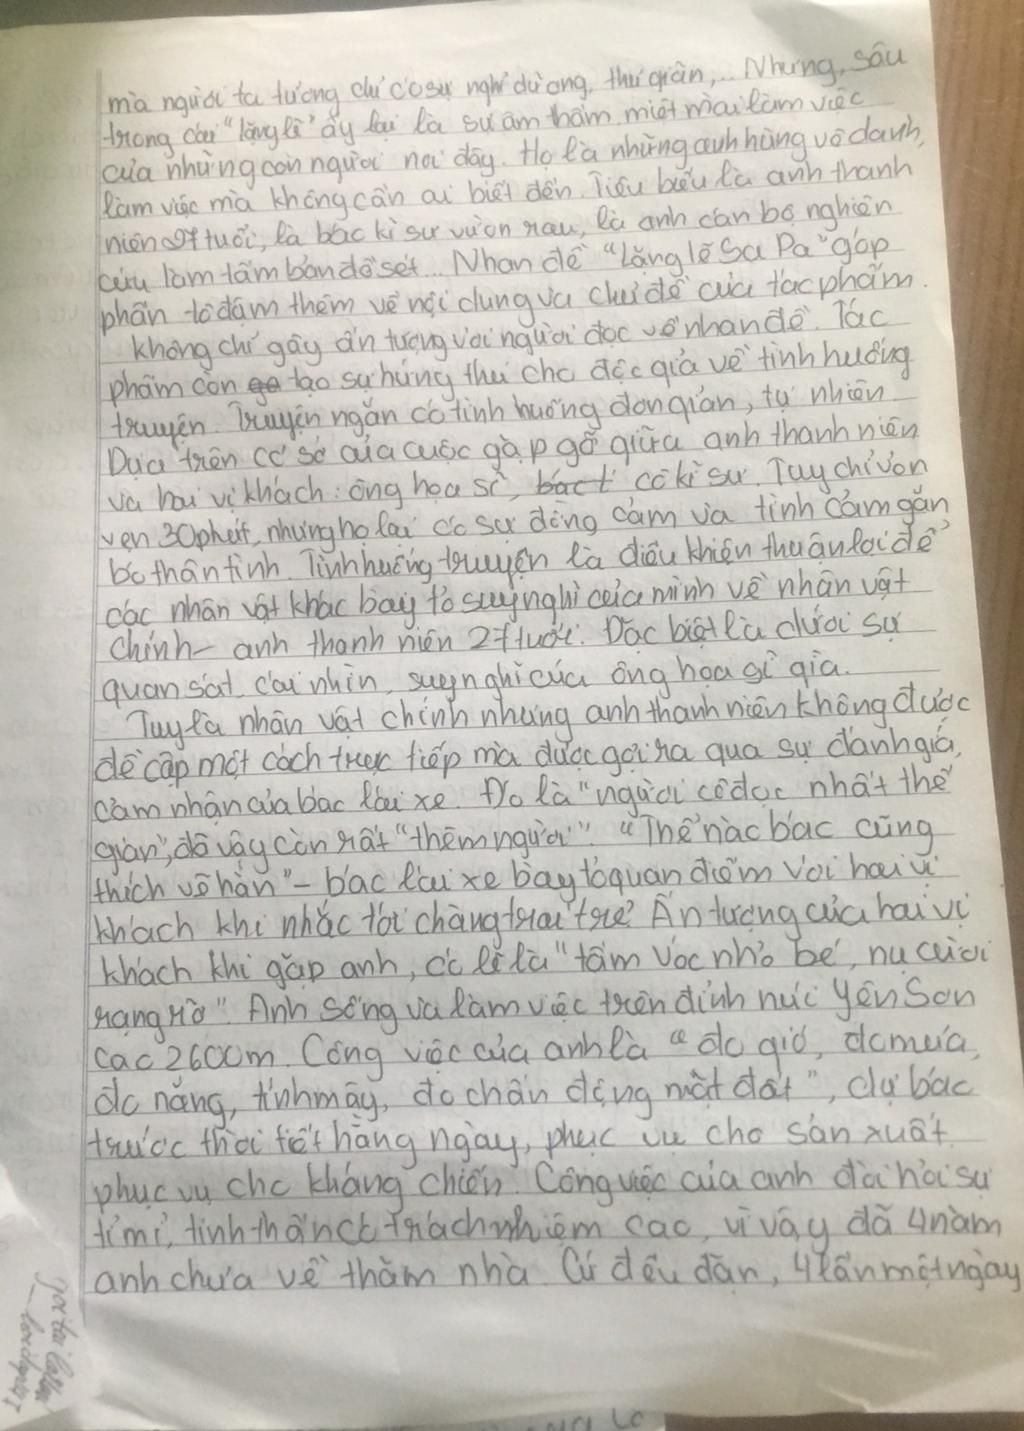 mà người ta tưởng chỉ có sự nghỉ dưỡng, thư giãn,... Nhưng, sâu
trong cái "lặng lẽ" ấy lại là sự âm thầm, miệt mài làm việc
của những con người nơi đây. Họ là những anh hùng vô danh,
làm việc mà không cần ai biết đến. Tiêu biểu là anh thanh
niên 27 tuổi, là bác kĩ sư vườn rau, là anh cán bộ nghiên
cứu làm tấm bản đồ sét... Nhan đề "Lặng lẽ Sa Pa" góp
phần tô đậm thêm về nội dung và chủ đề của tác phẩm.
Không chỉ gây ấn tượng với người đọc về nhan đề. Tác
phẩm còn tạo sự hứng thú cho độc giả về tình huống
truyện. Truyện ngắn có tình huống đơn giản, tự nhiên
Dựa trên cơ sở của cuộc gặp gỡ giữa anh thanh niên
và hai vị khách: ông họa sĩ, cô kĩ sư. Tuy chỉ vỏn
vẹn 30 phút, nhưng họ lại có sự đồng cảm và tình cảm gắn
bó thân tình. Tình huống truyện là điều khiện thuận lợi để
các nhân vật khác bày tỏ suy nghĩ của mình về nhận vật
chính - anh thanh niên 27 tuổi. Đặc biệt là dưới sự
quan sát, cái nhìn, suy nghĩ của ông họa sĩ già.
Tuy là nhân vật chính nhưng anh thanh niên không được
đề cập một cách trực tiếp mà được gợi ra qua sự đánh giá,
cảm nhận của bác lái xe. Đó là "người cô độc nhất thế
gian", dô vậy còn rất "thèm người". "Thế nào bác cũng
thích vô hàn" - bác lái xe bày tỏ quan điểm với hai vị
khách khi nhắc tới chàng trai trẻ. Ấn tượng của hai vị
khách khi gặp anh, có lẽ là "tầm vóc nhỏ bé, nụ cười
rạng rỡ". Anh sống và làm việc trên đỉnh núi Yên Sơn
cao 2600m. Công việc của anh là "đo gió, đo mưa,
đo nắng, tính mây, đo chấn động mặt đất", dự báo
trước thời tiết hằng ngày, phục vụ cho sản xuất
phục vụ cho kháng chiến. Công việc của anh đòi hỏi sự
tỉ mỉ, tinh thần có trách nhiệm cao, vì vậy đã 4 năm
anh chưa về thăm nhà. Cứ đều đặn, 4 lần một ngày